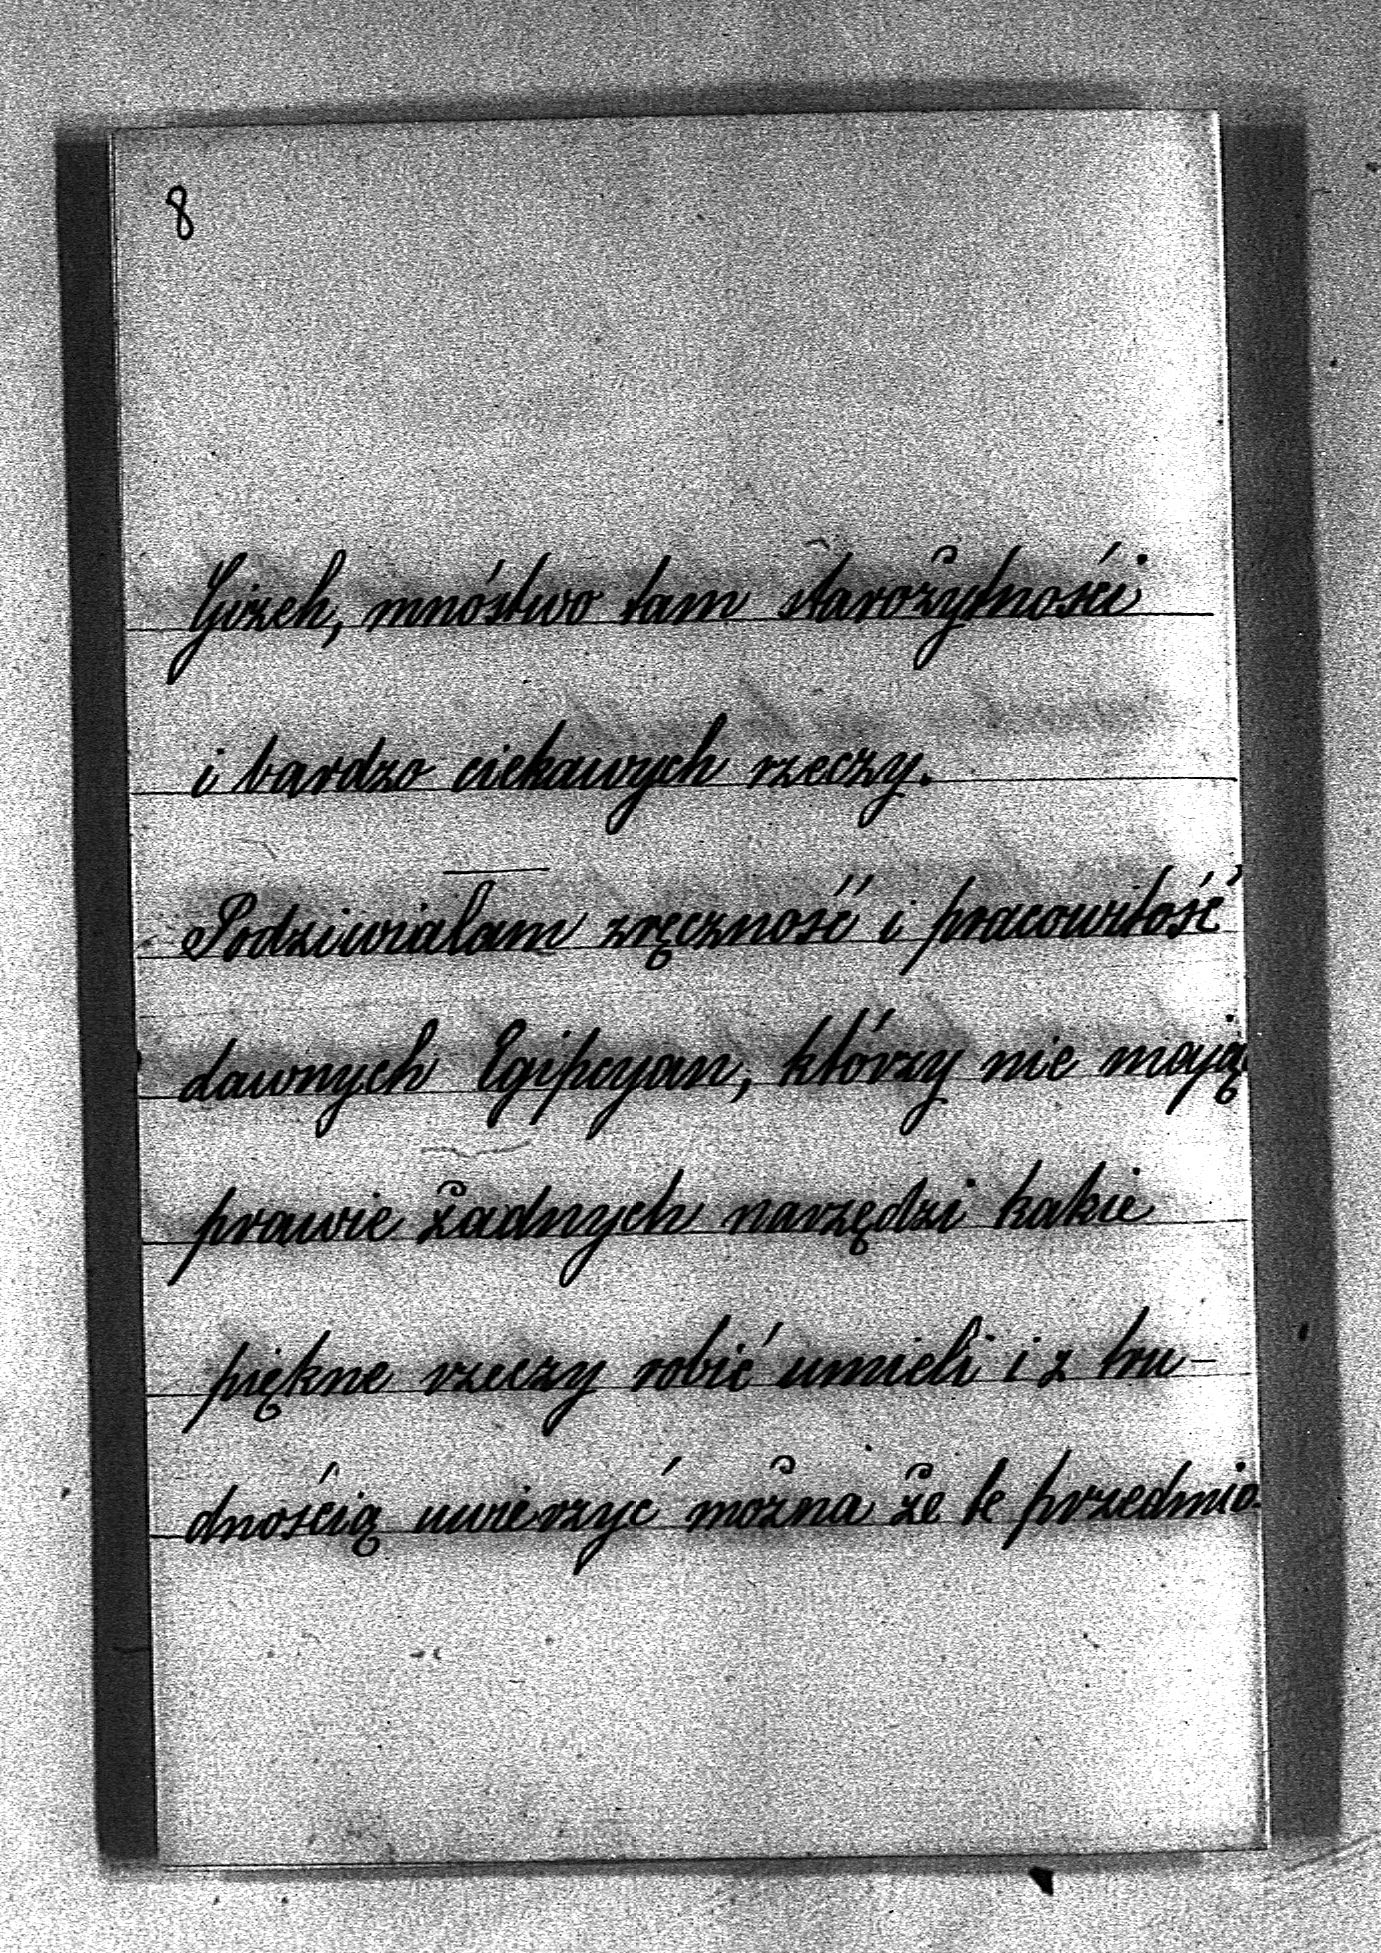 8
Gizeh, mnóstwo tam starożytności
i bardzo ciekawych rzeczy.
Podziwiałam zręczność i pracowitość
dawnych Egipcyan, którzy nie mając
prawie żadnych narzędzi takie
piękne rzeczy robić umieli i z tru-
dnością uwierzyć można że te przedmio-